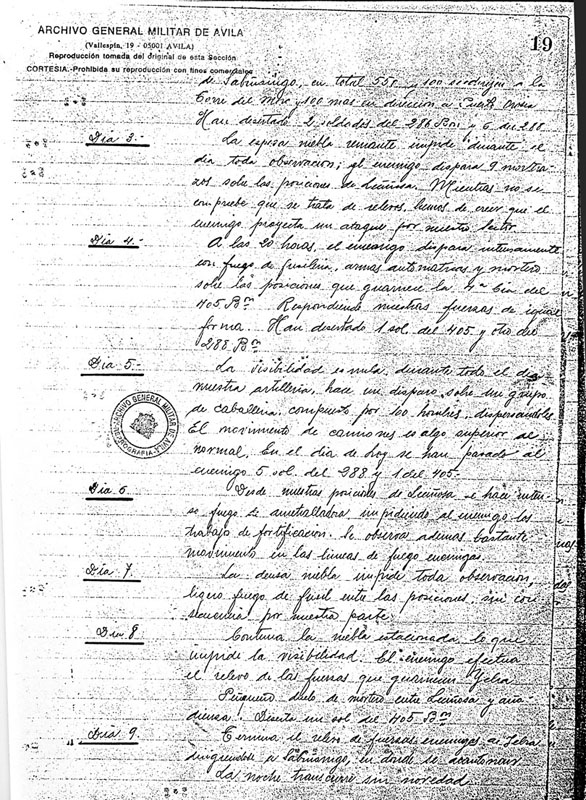 ARCHIVO GENERAL MILITAR DE AVILA
(Vallespín, 19 - 05001 AVILA)
Reproducción tomada del original de esta Sección
CORTESIA.-Prohibida su reproducción con fines comerciales
19
de Sabiñanigo, en total 550 y 100 se dirigen a la
Torre del Moro y 100 mas en dirección a
Han desertado 2 soldados del 286 Bon y 6 del 288
Dia 3.- La espesa niebla reinante impide durante el
dia toda observacion; el enemigo dispara 9 mortera
zos sobre las posiciones de Leiñosa. Mientras no se
compruebe que se trata de relevos, hemos de creer que el
enemigo proyecta un ataque por nuestro sector
Dia 4.- A las 20 horas, el enemigo dispara intensamente
con fuego de fusileria, armas automaticas y mortero
sobre las posiciones que guarnece la 4ª Cia del
405 Bon Respondiendo nuestras fuerzas de igual
forma. Han desertado 1 sol. del 405 y otro del
288 Bon
Dia 5- La visibilidad es nula, durante todo el dia
nuestra artilleria, hace un disparo sobre un grupo
de caballeria, compuesto por 100 hombres, dispersandoles
El movimiento de camiones es algo superior al
normal. En el dia de hoy se han pasado al
enemigo 5 sol. del 288 y 1 del 405-
Dia 6 Desde nuestras posiciones de Leiñosa se hace inten-
so fuego de ametralladora impidiendo al enemigo los
trabajo de fortificacion. Se observa ademas bastante
movimiento en las lineas de fuego enemigas.
Dia 7 La densa niebla impide toda observacion,
ligero fuego de fusil entre las posiciones, sin con
secuencias por nuestra parte.
Dia 8 Continua la niebla estacionada, lo que
impide la visibilidad. El enemigo efectua
el relevo de las fuerzas que guarnecen Yebra
Pequeño duelo de mortero entre Leiñosa y
Deserta un sol del 405 Bon
Dia 9. Termina el relevo de fuerzas enemigas de Yebra
dirigiendose a Sabiñanigo, en donde se acantonan
La noche transcurre sin novedad
ARCHIVO GENERAL MILITAR DE AVILA